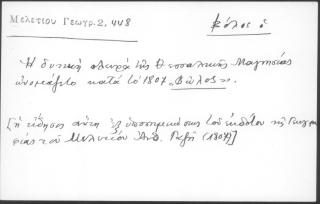 Μελετιου Γεωγρ. 2, 448
Βόλος ὁ
Ἡ δυτικὴ πλευρὰ τῆς Θεσσαλικῆς Μαγνησίας
ὠνομάζετο κατὰ τὸ 1807 „Βῶλος».
[ἡ εἴδησις αὕτη ἐξ ὑποσημειώσεως τοῦ ἐκδότου τῆς Γεωγρα
φίας τοῦ Μελετίου Ἀνθ. Γαζῆ (1807)]